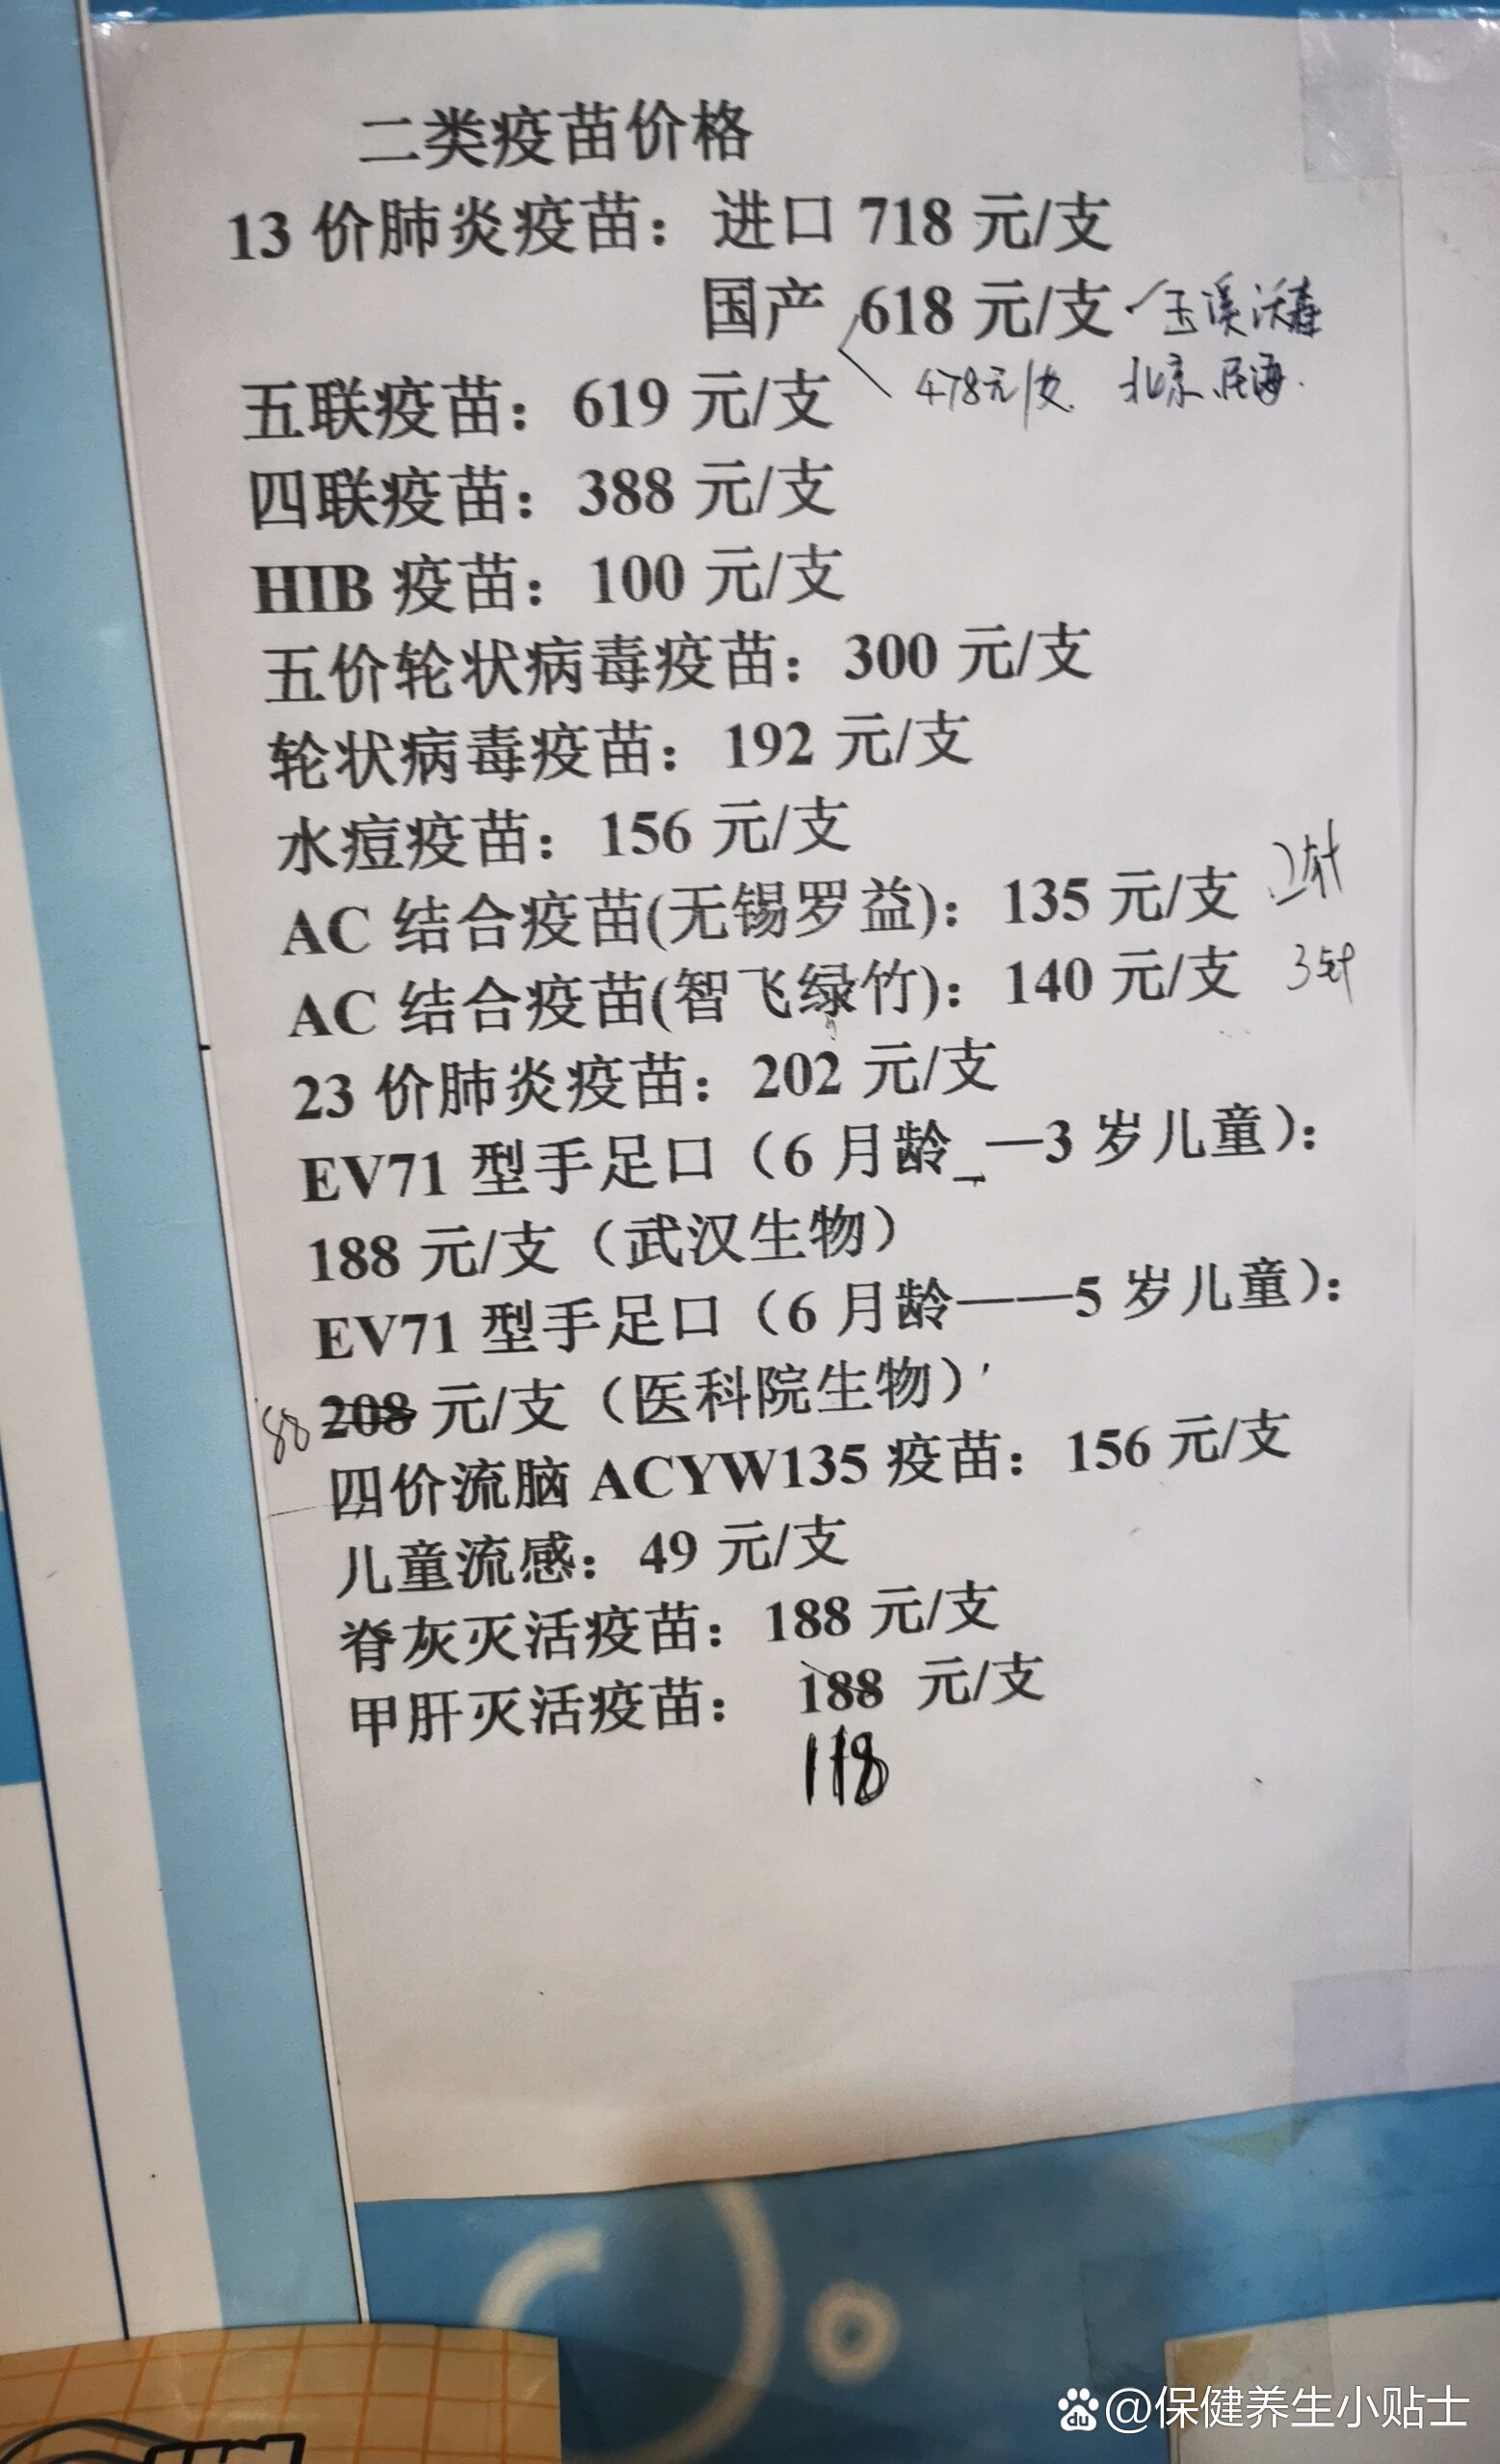 二类疫苗价格
13 价肺炎疫苗：进口 718 元/支
国产 618 元/支 玉溪沃森
478元/支 北京民海
五联疫苗：619 元/支
四联疫苗：388 元/支
HIB 疫苗：100 元/支
五价轮状病毒疫苗：300 元/支
轮状病毒疫苗：192 元/支
水痘疫苗：156 元/支
AC 结合疫苗(无锡罗益)：135 元/支 2针
AC 结合疫苗(智飞绿竹)：140 元/支 3针
23 价肺炎疫苗：202 元/支
EV71 型手足口（6 月龄_—3 岁儿童）：
188 元/支（武汉生物）
EV71 型手足口（6 月龄——5 岁儿童）：
88 208 元/支（医科院生物）
四价流脑 ACYW135 疫苗：156 元/支
儿童流感：49 元/支
脊灰灭活疫苗：188 元/支
甲肝灭活疫苗： 188 元/支
118
du @保健养生小贴士